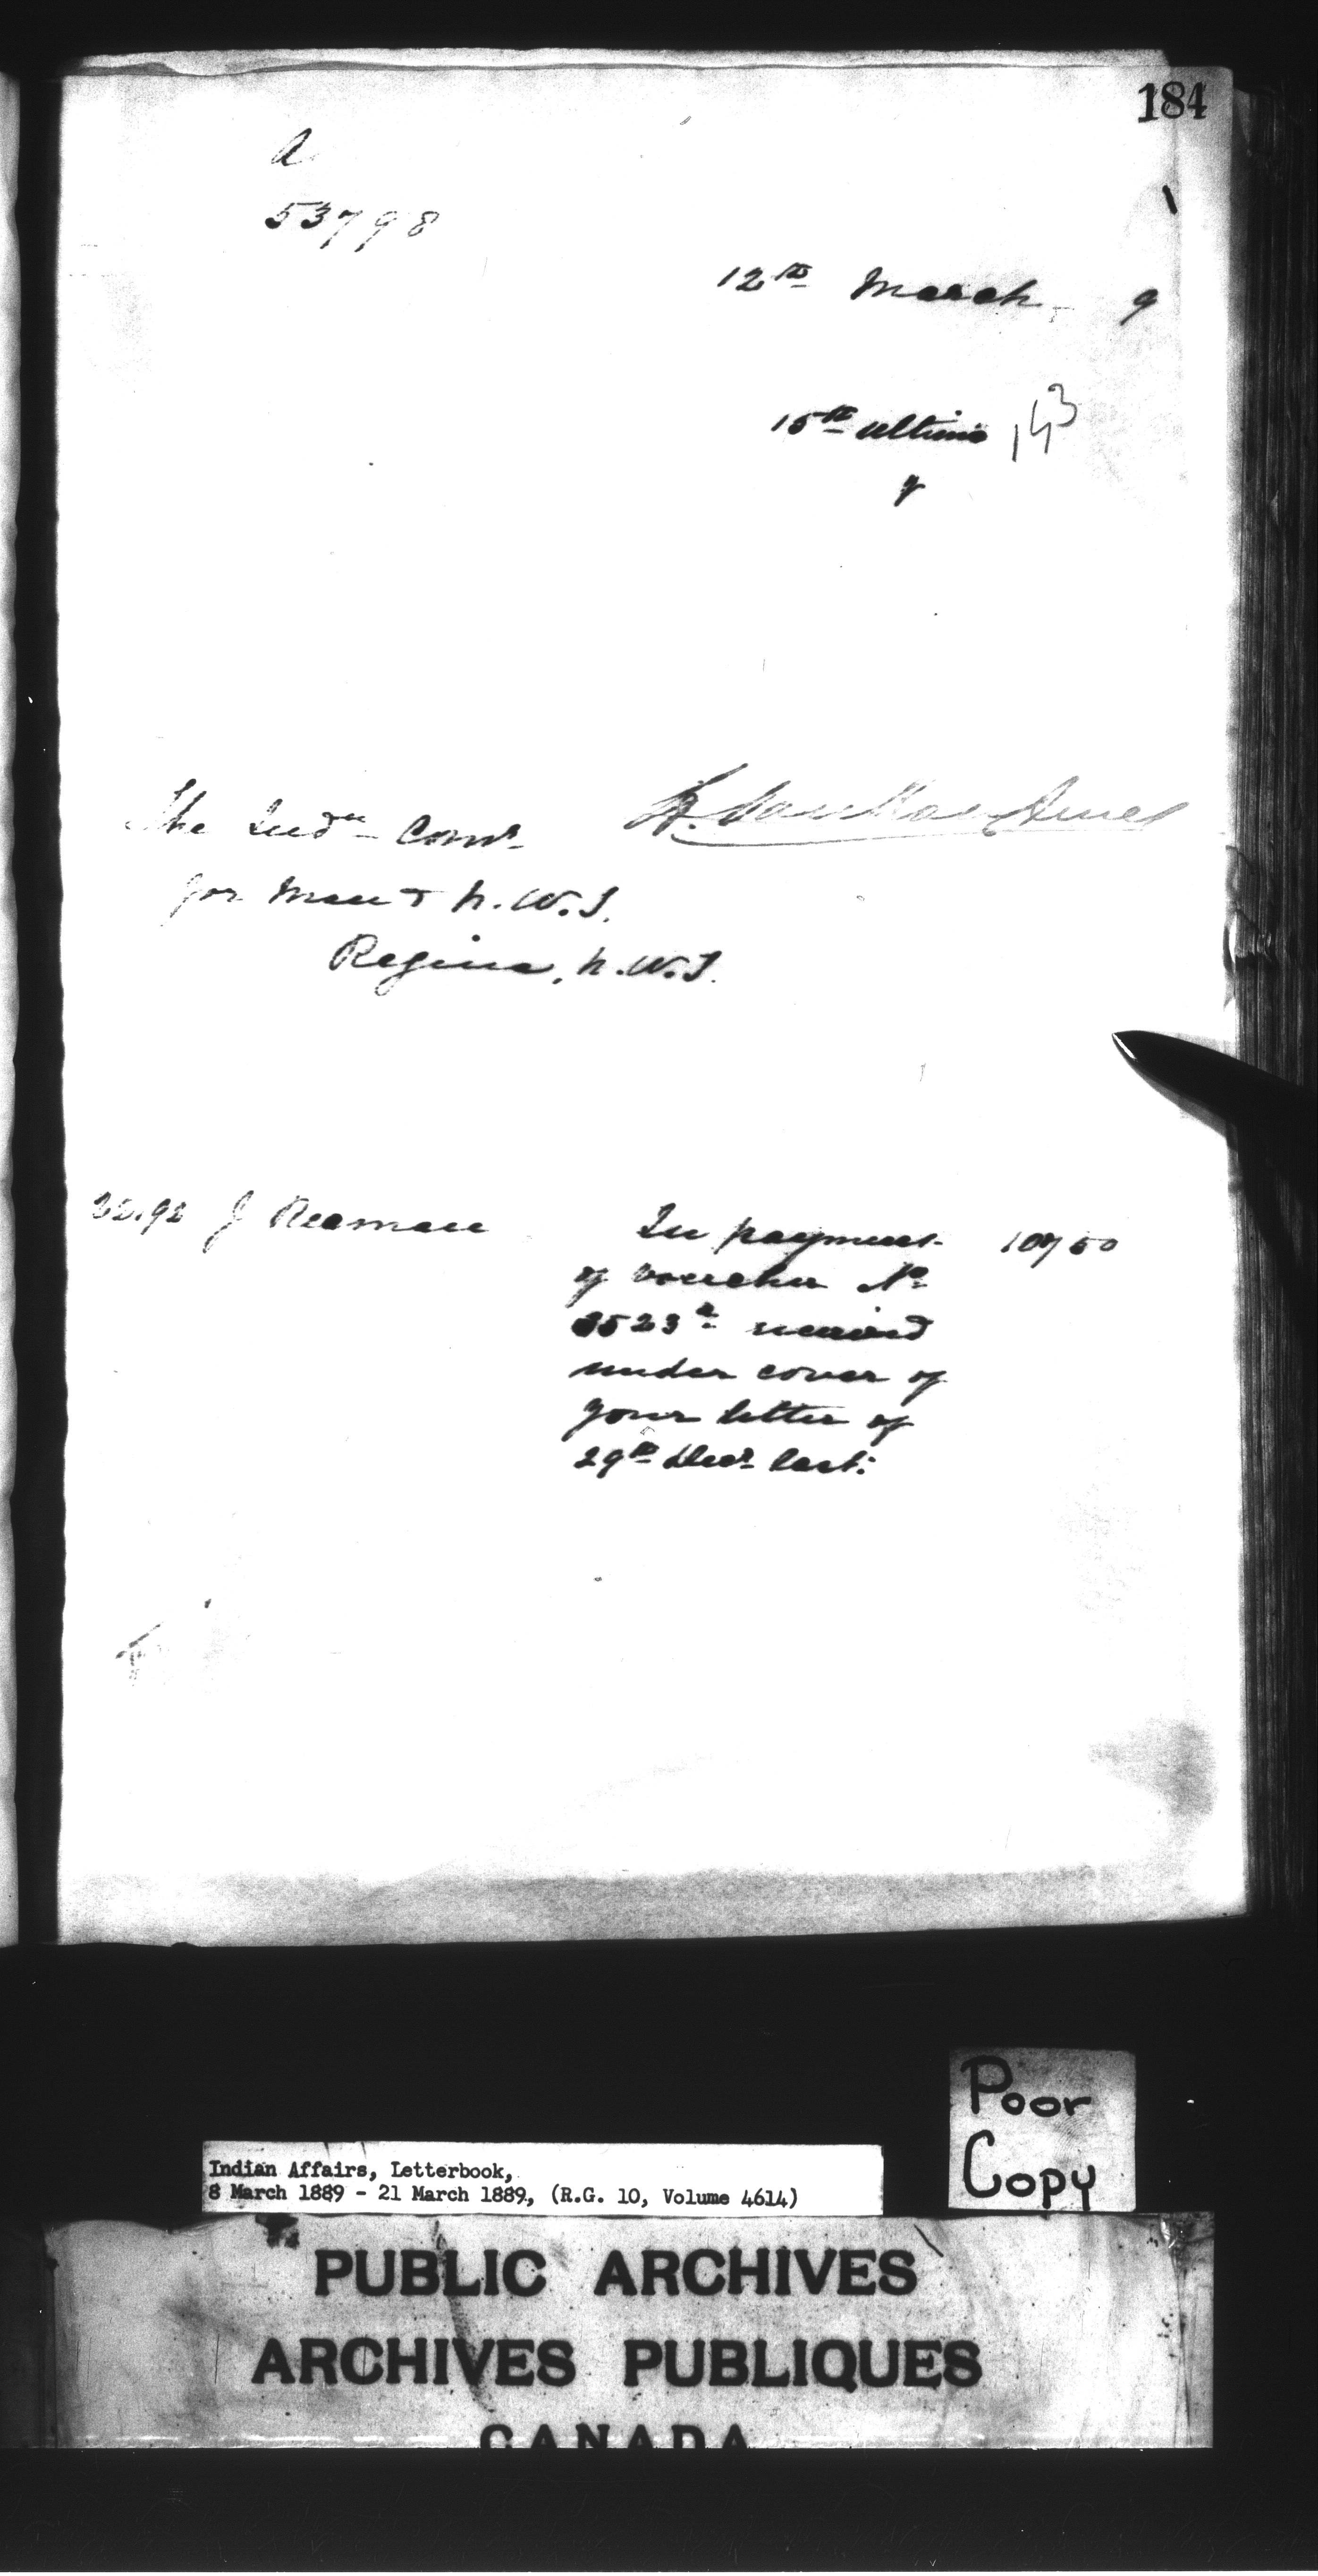 184
A
53798
12th March 9
15th ultimo 143
y
The Indn Comr
for Man & N.W.T.
Regina, N.W.T.
J Reaman In payment 107 50
of voucher No
3523a received
under cover of
your letter of
29th Decr last:
Poor
Copy
Indian Affairs, Letterbook,
8 March 1889 - 21 March 1889, (R.G. 10, Volume 4614)
PUBLIC ARCHIVES
ARCHIVES PUBLIQUES
CANADA